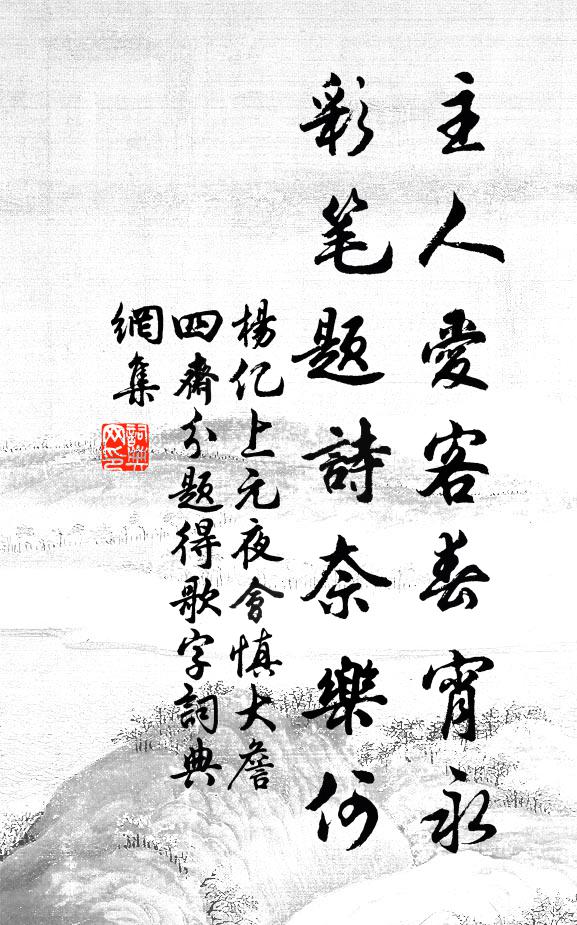 主人愛客春宵永
彩笔題詩奈樂何
楊亿上元夜會慎大詹
四齋分題得歌字詞典
網集